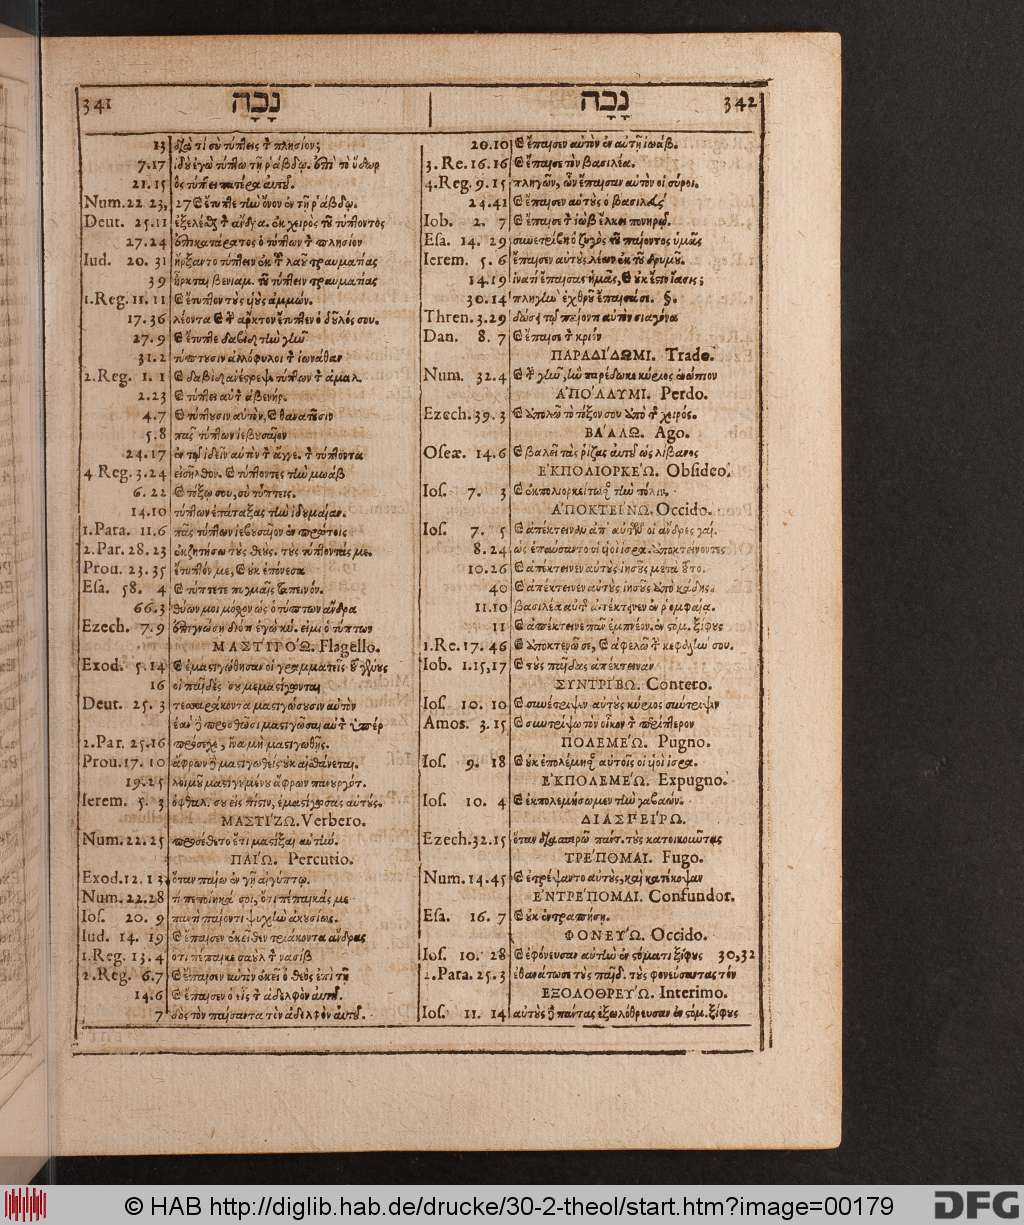 341 נָכָה
13 διὰ τί σὺ τύπτεις τ πλησίον;
7.17 ἰδοὺ ἐγὼ τύπτω τῇ ῥάβδῳ. ἐπὶ τὸ ὕδωρ
21.15 ὃς τύπτει πατέρα αὐτοῦ.
Num. 22 23, 27 ϗ ἔτυπτε τὴν ὄνον ἐν τῇ ῥάβδῳ.
Deut. 25.11 ἐξελέσθαι τ ἄνδρα. ἐκ χειρὸς τοῦ τύπτοντος
27.24 ἐπικατάρατος ὁ τύπτων τ πλησίον
Iud. 20. 31 ἤρξαντο τύπτειν ἐκ τ λαοῦ τραυματίας
39 ἦρκται βενιαμ. τοῦ τύπτειν τραυματίας
1.Reg. 11. 11 ϗ ἔτυπτον τοὺς υἱοὺς ἀμμών.
17.36 λέοντα ϗ τ ἄρκτον ἔτυπτεν ὁ δοῦλός σου.
27.9 ϗ ἔτυπτε δαβὶδ τὴν γῆν
31.2 τύπτουσιν ἀλλόφυλοι τ ἰωνάθαν
2.Reg. 1. 1 ϗ δαβὶδ ἀνέστρεψε τύπτων τ ἀμαλ.
2.23 ϗ τύπτει αὐτ ἀβενήρ.
4.7 ϗ τύπτουσιν αὐτὸν, ϗ θανατοῦσιν
5.8 πᾶς τύπτων ἰεβουσαῖον
24.17 ἐν τῷ ἰδεῖν αὐτὸν τ ἄγγε. τ τύπτοντα
4 Reg. 3.24 εἰσῆλθον. ϗ τύπτοντες τὴν μωάβ
6. 22 ϗ τόξῳ σου, σὺ τύπτεις.
14.10 τύπτων ἐπάταξας τὴν ἰδυμαίαν.
1.Para. 11.6 πᾶς τύπτων ἰεβουσαῖον ἐν πρώτοις
2.Par. 28. 23 ἐκζητήσω τοὺς θεοὺς. τοὺς τύπτοντάς με.
Prou. 23. 35 ἔτυπτόν με, ϗ οὐκ ἐπόνεσα
Esa. 58. 4 ϗ τύπτετε πυγμαῖς ταπεινόν.
66.3 θύων μοι μόσχον ὡς ὁ τύπτων ἄνδρα
Ezech. 7. 9 ἐπιγνώσῃ διότι ἐγώ κύ. εἰμι ὁ τύπτων
ΜΑΣΤΙΓΟΏ. Flagello.
Exod. 5. 14 ϗ ἐμαστιγώθησαν οἱ γραμματεῖς τοῦ γένους
16 οἱ παῖδές σου μεμαστίγωνται
Deut. 25. 3 τεσσαράκοντα μαστιγώσουσιν αὐτὸν
ἐὰν ἢ προσθῶσι μαστιγῶσαι αὐτ ὑπὲρ
2.Par. 25.16 πρόσεχε, ἵνα μὴ μαστιγωθῇς.
Prou. 17. 10 ἄφρων ἢ μαστιγωθεὶς οὐκ αἰσθάνεται.
19.25 λοιμοῦ μαστιγουμένου ἄφρων πανουργότ.
Ierem. 5. 3 ὀφθαλ. σου εἰς πίστιν, ἐμαστίγωσας αὐτούς.
ΜΑΣΤΊΖΩ. Verbero.
Num. 22. 25 προσέθετο ἔτι μαστίξαι αὐτήν.
ΠΑΊΩ. Percutio.
Exod. 12. 13 ὅταν παίω ἐν γῇ αἰγύπτῳ.
Num. 22.28 τί πεποίηκά σοι, ὅτι πέπαικάς με
Ios. 20. 9 παντὶ παίοντι ψυχὴν ἀκουσίως.
Iud. 14. 19 ϗ ἔπαισεν ἐκεῖθεν τριάκοντα ἄνδρας
1.Reg. 13.4 ὅτι πέπαικε σαοὺλ τ νασίβ
2.Reg. 6.7 ϗ ἔπαισεν αὐτὸν ἐκεῖ ὁ θεὸς ἐπὶ τῇ
14.6 ϗ ἔπαισεν ὁ εἷς τ ἀδελφὸν αὐτοῦ.
7 δὸς τὸν παίσαντα τὸν ἀδελφὸν αὐτοῦ.
נָכָה 342
20.10 ϗ ἔπαισεν αὐτὸν ἐν αὐτῇ ἰωάβ.
3. Re. 16.16 ϗ ἔπαισε τὸν βασιλέα.
4.Reg. 9. 15 πληγῶν, ὧν ἔπαισαν αὐτὸν οἱ σύροι.
24.41 ϗ ἔπαισεν αὐτοὺς ὁ βασιλεὺς
Iob. 2. 7 ϗ ἔπαισε τ ἰὼβ ἕλκει πονηρῷ.
Esa. 14. 29 συνετρίβη ὁ ζυγὸς τοῦ παίοντος ὑμᾶς
Ierem. 5. 6 ἔπαισεν αὐτοὺς λέων ἐκ τοῦ δρυμοῦ.
14.19 ἱνατί ἔπαισας ἡμᾶς, ϗ οὐκ ἔστιν ἴασις;
30.14 πληγὴν ἐχθροῦ ἔπαισά σε. §.
Thren. 3.29 δώσει τῷ παίοντι αὐτὸν σιαγόνα
Dan. 8. 7 ϗ ἔπαισε τ κριὸν
ΠΑΡΑΔΊΔΩΜΙ. Trado.
Num. 32.4 ϗ τ γῆν, ἣν παρέδωκε κύριος ἐνώπιον
ἈΠΌΛΛΥΜΙ. Perdo.
Ezech. 39. 3 ϗ ἀπολῶ τὸ τόξον σου ἀπὸ τ χειρός.
ΒΆΛΛΩ. Ago.
Oseæ. 14.6 ϗ βαλεῖ τὰς ῥίζας αὐτοῦ ὡς λίβανος
ἘΚΠΟΛΙΟΡΚΈΩ. Obsideo.
Ios. 7. 3 ϗ ἐκπολιορκείτωσαν τὴν πόλιν.
ἈΠΟΚΤΕΊΝΩ. Occido.
Ios. 7. 5 ϗ ἀπέκτειναν ἀπ' αὐτῶν οἱ ἄνδρες γαί.
8.24 ὡς ἐπαύσαντο οἱ υἱοὶ ἰσρα. ἀποκτείνοντες
10.26 ϗ ἀπέκτεινεν αὐτοὺς ἰησοῦς μετὰ τοῦτο.
40 ϗ ἀπέκτεινεν αὐτοὺς ἰησοῦς ἀπὸ κάδης.
11.10 βασιλέα αὐτ ἀπέκτεινεν ἐν ῥομφαίᾳ.
11 ϗ ἀπέκτεινε πᾶν ἐμπνέον. ἐν στόμ. ξίφους
1.Re. 17. 46 ϗ ἀποκτενῶ σε, ϗ ἀφελῶ τ κεφαλήν σου.
Iob. 1.15,17 ϗ τοὺς παῖδας ἀπέκτειναν
ΣΥΝΤΡΊΒΩ. Contero.
Ios. 10. 10 ϗ συνέτριψεν αὐτοὺς κύριος σύντριψιν
Amos. 3. 15 ϗ συντρίψω τὸν οἶκον τ περίπτερον
ΠΟΛΕΜΈΩ. Pugno.
Ios. 9. 18 ϗ οὐκ ἐπολέμησαν αὐτοῖς οἱ υἱοὶ ἰσρα.
ἘΚΠΟΛΕΜΈΩ. Expugno.
Ios. 10. 4 ϗ ἐκπολεμήσωμεν τὴν γαβαών.
ΔΙΑΣΠΕΊΡΩ.
Ezech. 32.15 ὅταν διασπερῶ πάντ. τοὺς κατοικοῦντας
ΤΡΈΠΟΜΑΙ. Fugo.
Num. 14.45 ϗ ἐτρέψαντο αὐτοὺς, καὶ κατέκοψαν
ἘΝΤΡΈΠΟΜΑΙ. Confundor.
Esa. 16. 7 ϗ οὐκ ἐντραπήσῃ.
ΦΟΝΕΎΩ. Occido.
Ios. 10. 28 ϗ ἐφόνευσαν αὐτὴν ἐν στόματι ξίφους 30,32
2.Para. 25. 3 ἐθανάτωσε τοὺς παῖδ. τοὺς φονεύσαντας τόν
ἘΞΟΛΟΘΡΕΎΩ. Interimo.
Ios. 11. 14 αὐτοὺς ἢ πάντας ἐξωλόθρευσαν ἐν στόμ. ξίφους
© HAB http://diglib.hab.de/drucke/30-2-theol/start.htm?image=00179 DFG